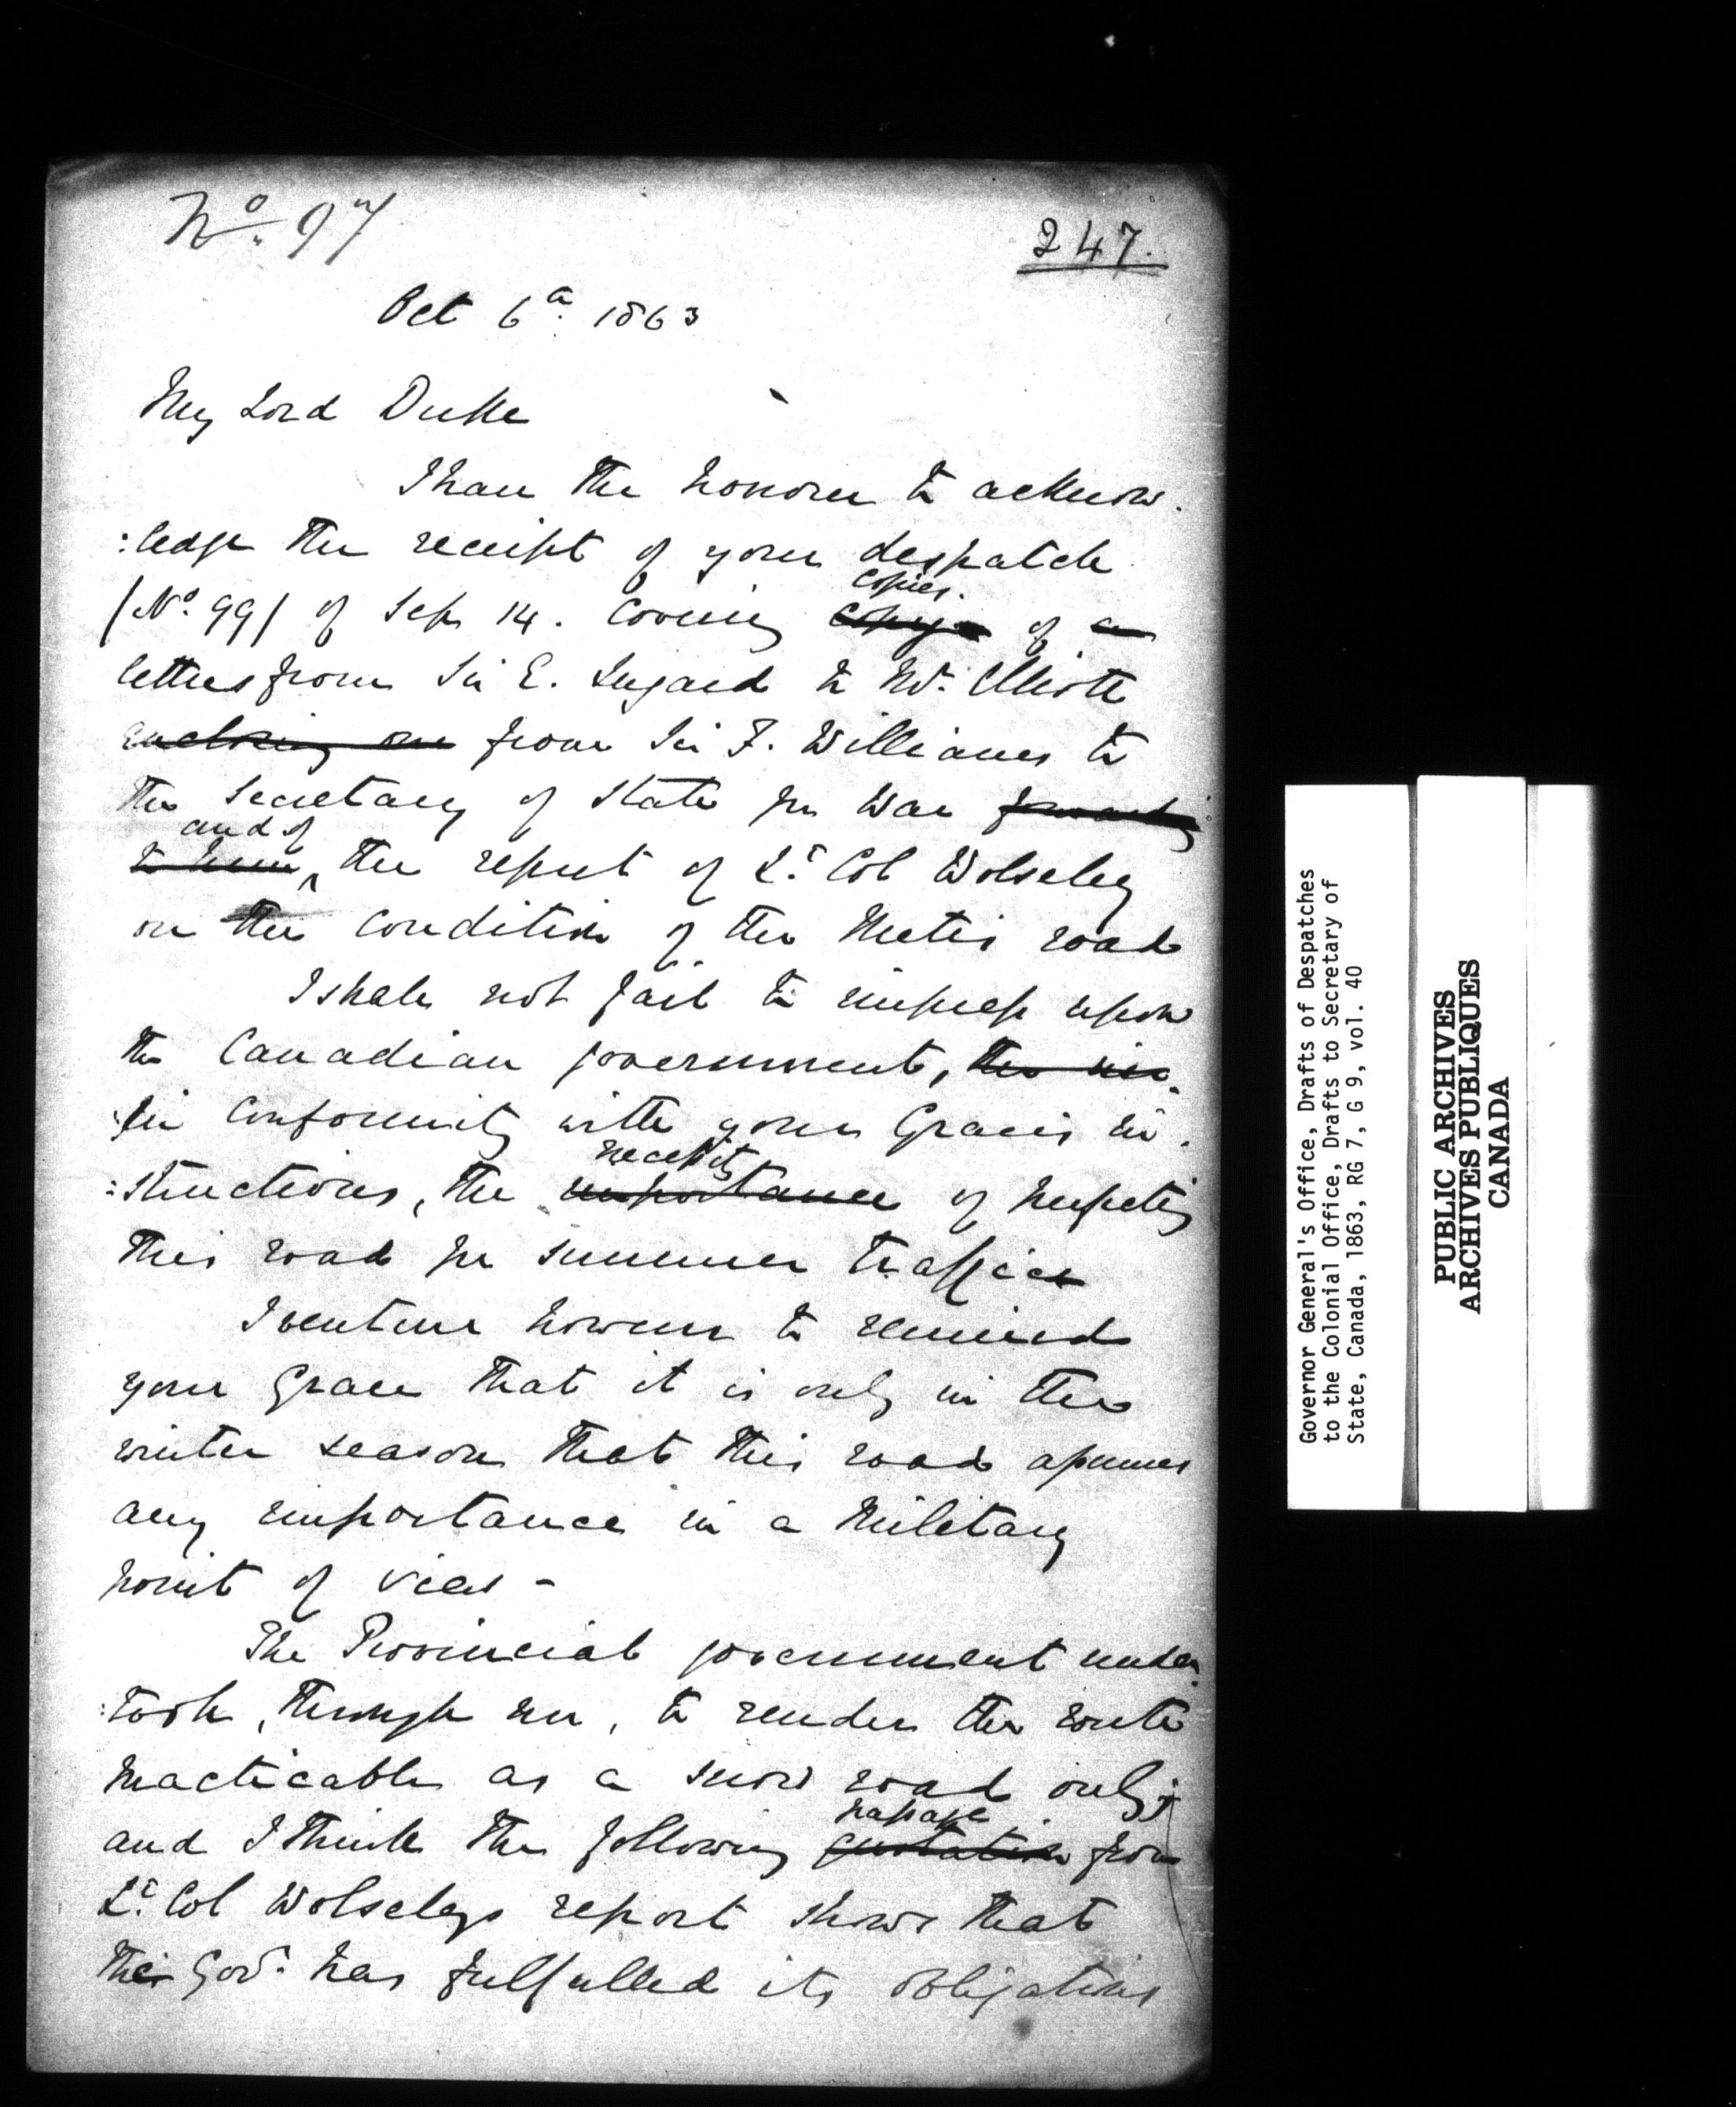 No. 97
247.
Oct 6th. 1863
My Lord Duke
I have the honour to acknow.
:ledge the receipt of your despatch
copies.
(No. 99) of Sep 14. covering copy of a
letters from Sir E. Lugard to Mr. Elliott
enclosing one from Sir F. Williams to
the Secretary of State for War forwarding
and of
to him, the report of Lt. Col Wolseley
on the condition of the Metis road
I shall not fail to impress upon
the Canadian government, the in.
:in conformity with your Grace's in.
necessity
:structions, the importance of perfecting
this road for summer traffick
I venture however to remind
your Grace that it is only in the
winter season that this road assumes
any importance in a Military
point of view -
The Provincial government under.
:took, through me, to render the route
practicable as a snow road only;
passage
and I think the following quotation from
Lt. Col Wolseleys report shows that
the Govt. has fulfilled its obligations
Governor General's Office, Drafts of Despatches
to the Colonial Office, Drafts to Secretary of
State, Canada, 1863, RG 7, G 9, vol. 40
PUBLIC ARCHIVES
ARCHIVES PUBLIQUES
CANADA